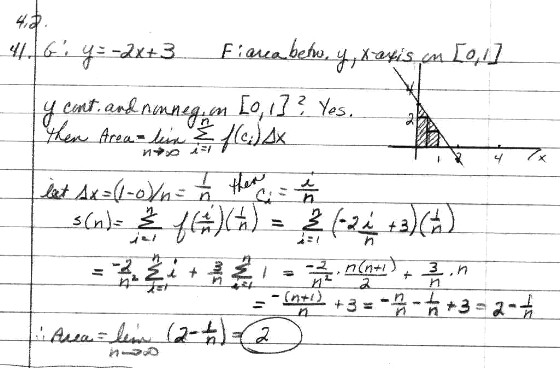 4.2.
41. G: y = -2x+3 F: area betw. y, x-axis on [0,1]
y cont. and nonneg. on [0,1]? Yes.
Then Area = lim n→∞ n Σ i=1 f(ci) Δx
4
2
1 2 4 x
let Δx = (1-0)/n = 1/n then ci = i/n
s(n) = n Σ i=1 f(i/n)(1/n) = n Σ i=1 (-2i/n + 3)(1/n)
= -2/n² n Σ i=1 i + 3/n n Σ i=1 1 = -2/n² · n(n+1)/2 + 3/n · n
= -(n+1)/n + 3 = -n/n - 1/n + 3 = 2 - 1/n
∴ Area = lim n→∞ (2 - 1/n) = 2